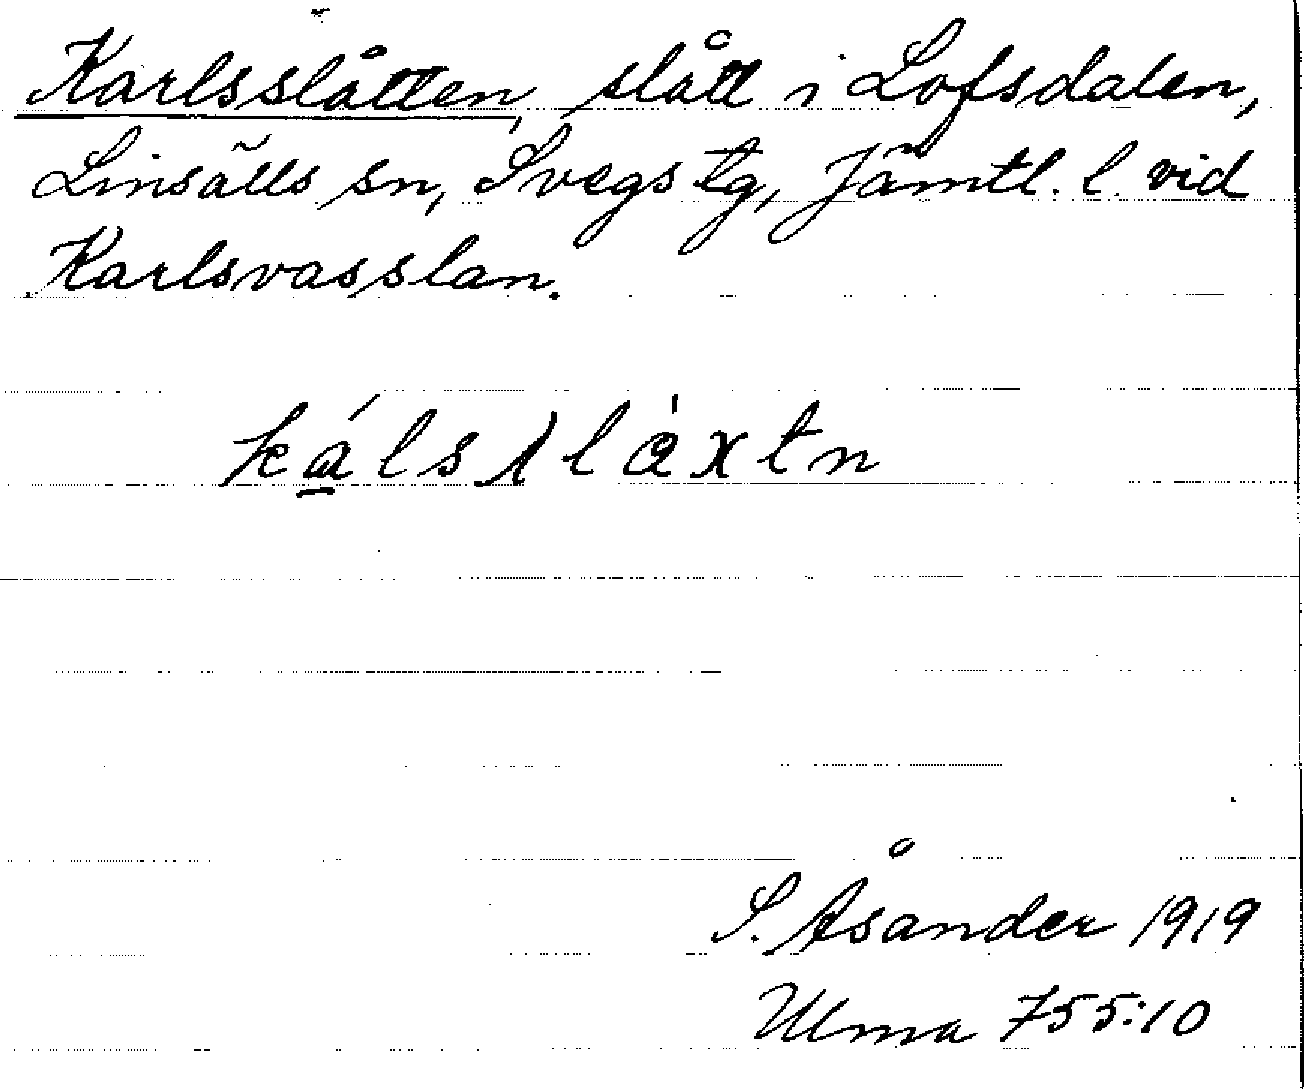 Karlsslåtten, slått i Lofsdalen,
Linsälls sn, Svegs tg, Jämtl. l. vid
Karlsvasslan.
S. Åsander 1919
Ulma 755:10